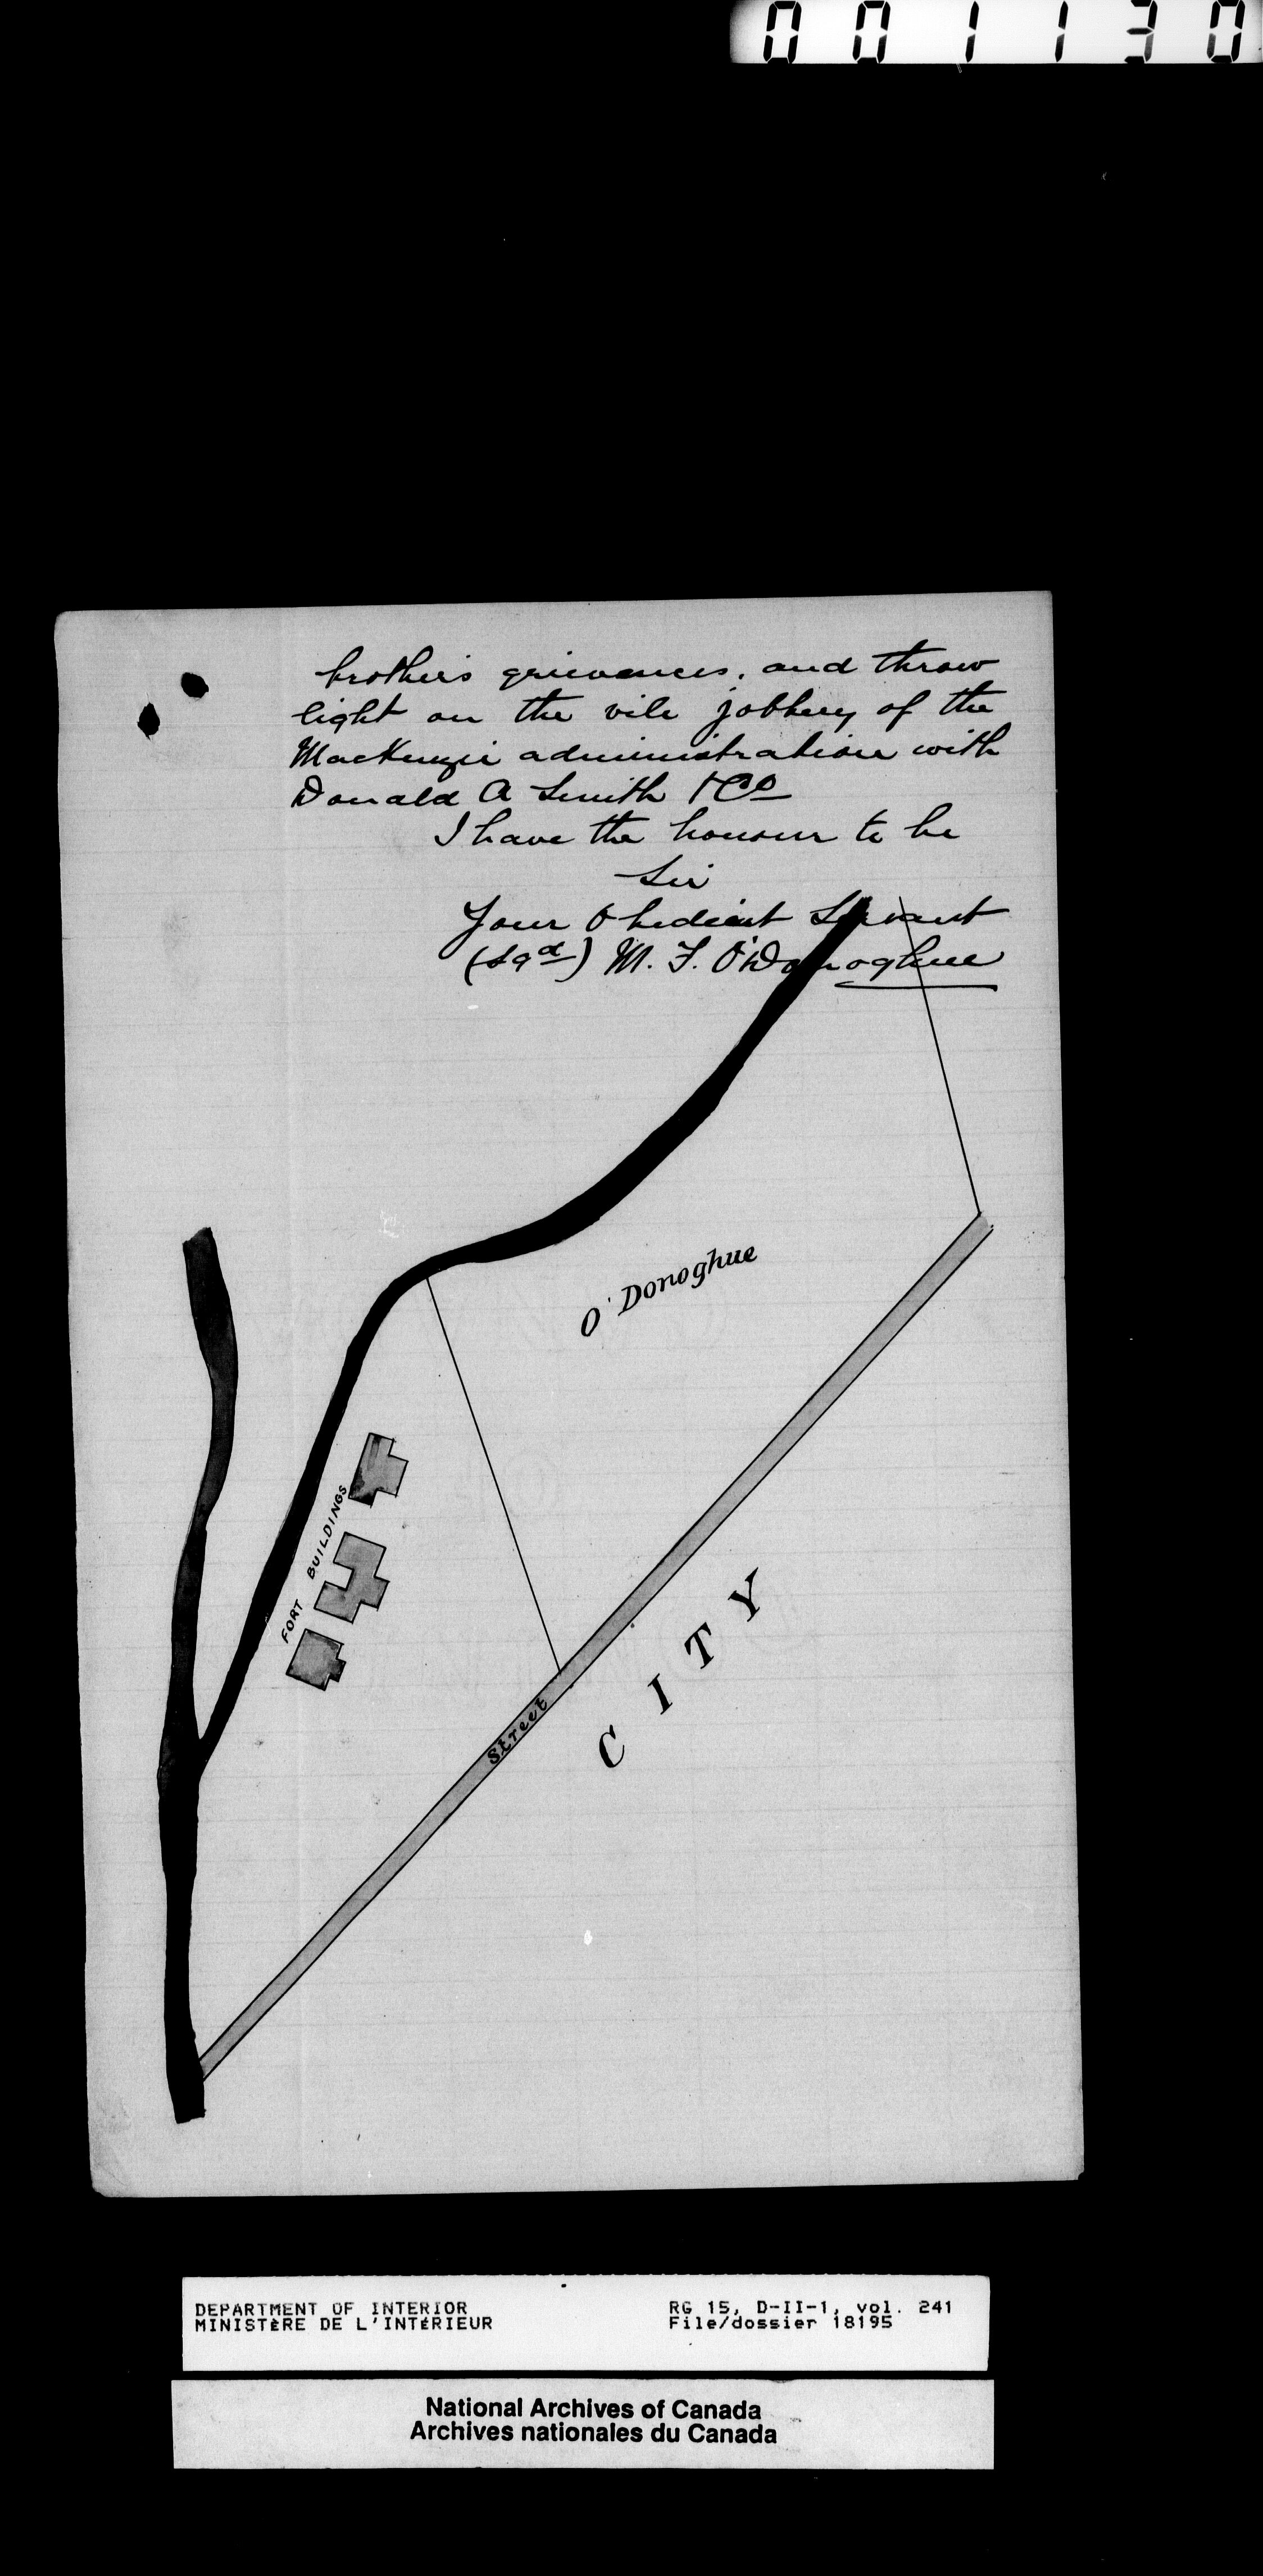 001130
brother's grievances, and throw
light on the vile jobbery of the
MacKenzie administration with
Donald A Smith & Co
I have the honour to be
Sir
Your Obedient Servant
(Sgd) M. F. O'Donoghue
O'Donoghue
FORT BUILDINGS
Street
CITY
DEPARTMENT OF INTERIOR
MINISTÈRE DE L'INTÉRIEUR
RG 15, D-II-1, vol. 241
File/dossier 18195
National Archives of Canada
Archives nationales du Canada